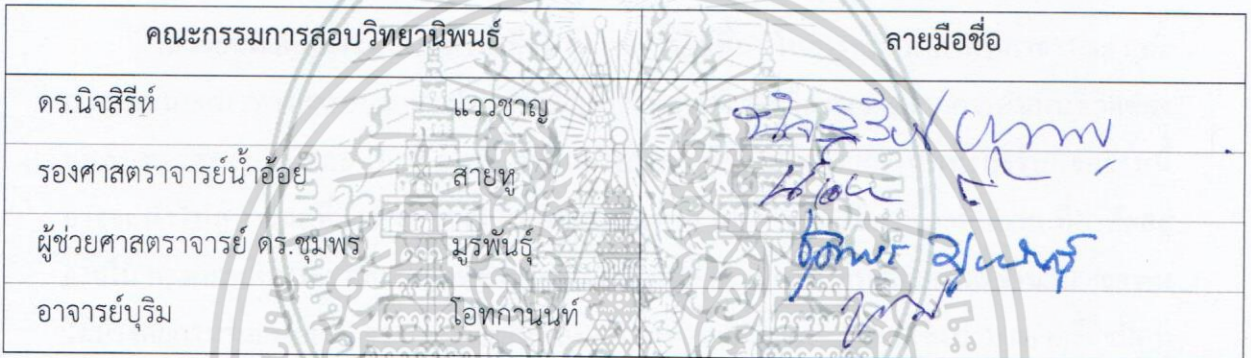 คณะกรรมการสอบวิทยานิพนธ์ ลายมือชื่อ
ดร.นิจสิรีห์ แววชาญ
รองศาสตราจารย์น้ำอ้อย สายหู
ผู้ช่วยศาสตราจารย์ ดร.ชุมพร มูรพันธุ์ ชุมพร มูรพันธุ์
อาจารย์บุริม โอทกานนท์